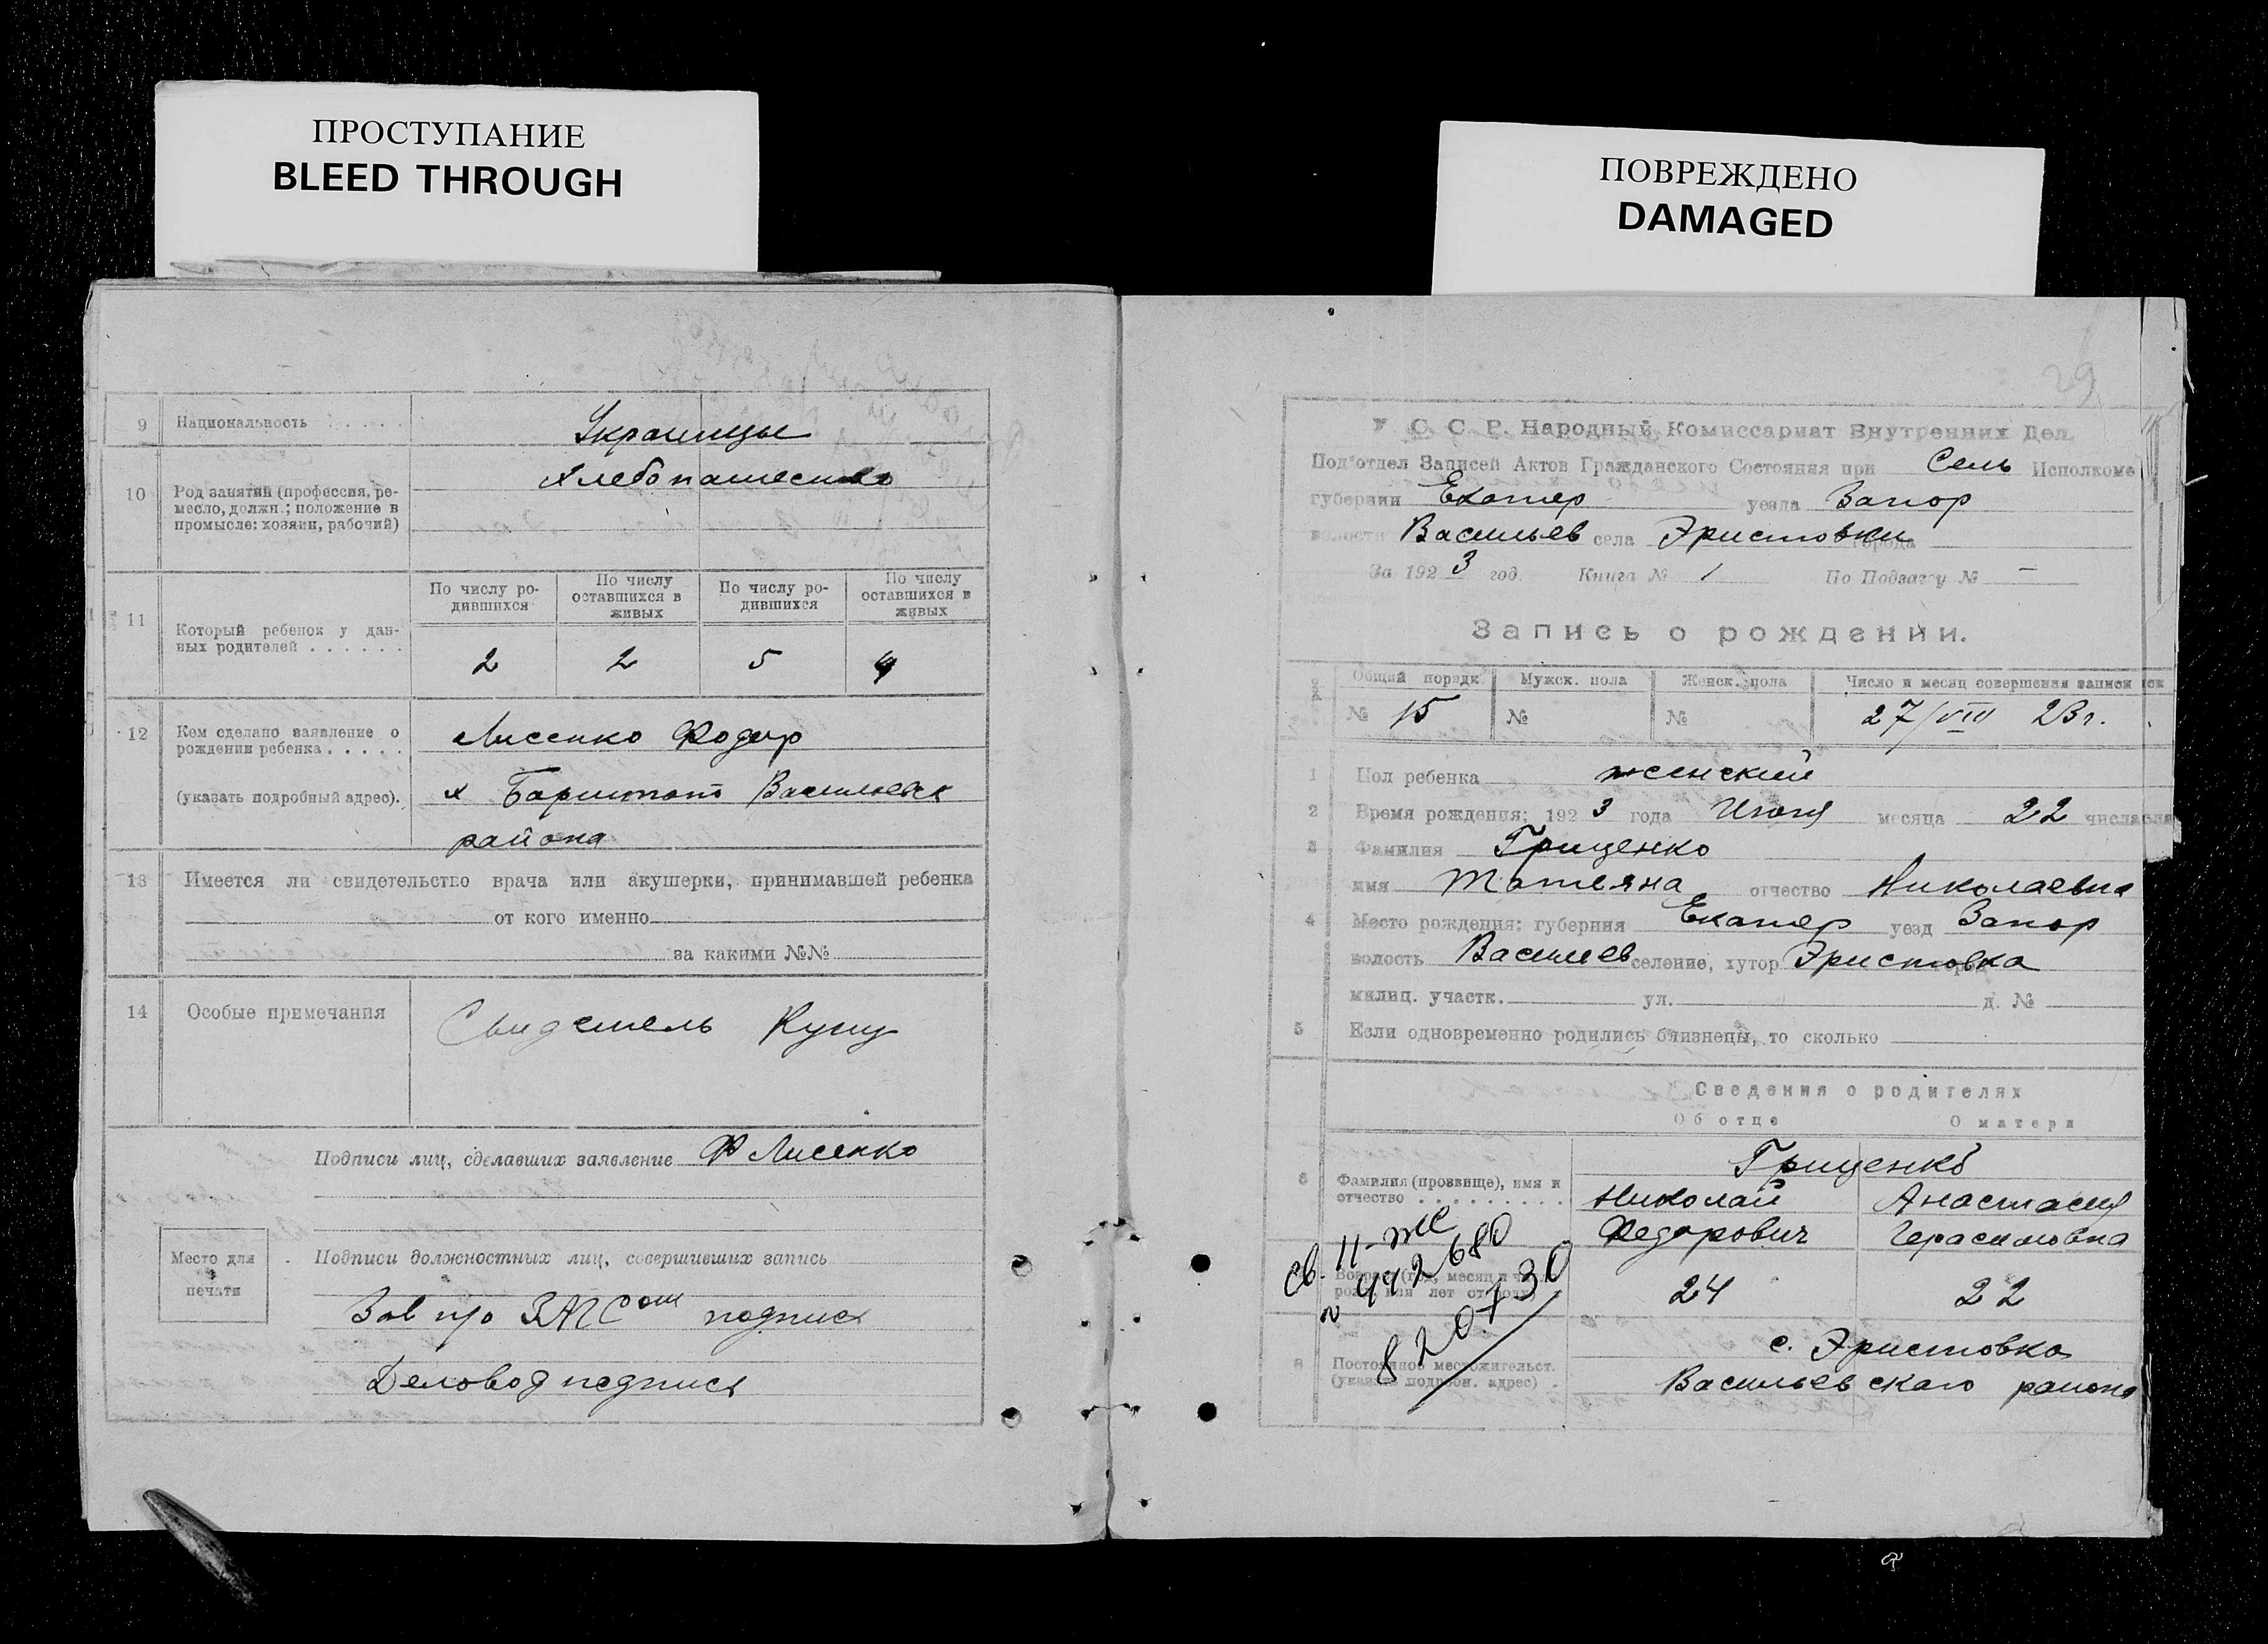 ПРОСТУПАНИЕ
BLEED THROUGH
9 Национальность Украинцы
10 Род занятий (профессия, ре-
месло, должн.; положение в
промысле: хозяин, рабочий)
Хлебопашество
11 Который ребенок у дан-
ных родителей
По числу ро-
дившихся
По числу
оставшихся в
живых
По числу ро-
дившихся
По числу
оставшихся в
живых
2 2 5 4
12 Кем сделано заявление о
рождении ребенка
(указать подробный адрес).
Лисенко Федор
х Васильевск
района
13 Имеется ли свидетельство врача или акушерки, принимавшей ребенка
от кого именно
за какими №№
14 Особые примечания
Свидетель
Подписи лиц, сделавших заявление Ф Лисенко
Место для
печати
Подписи должностных лиц, совершивших запись
Зав п/о ЗАГСом подпись
Деловод подпись
ПОВРЕЖДЕНО
DAMAGED
29
У С. С. Р. Народный Комиссариат Внутренних Дел
Под'отдел Записей Актов Гражданского Состояния при Сель Исполкоме
губернии Екатер уезда Запор
волости Васильев села Эристовки города
За 1923 год. Книга № 1 По Подзагсу № —
Запись о рождении.
Общий порядк Мужск. пола Женск. пола Число и месяц совершения записи
№ 15 № № 27/VIII 23 г.
1 Пол ребенка женский
2 Время рождения: 1923 года Июня месяца 22 числа
3 Фамилия Гриценко
имя Татьяна отчество Николаевна
4 Место рождения: губерния Екатер уезд Запор
волость Васильев селение, хутор Эристовка
милиц. участк. ул. д. №
5 Если одновременно родились близнецы, то сколько
Сведения о родителях
Об отце О матери
6 Фамилия (прозвище), имя и
отчество
Гриценко
Николай Анастасия
Федорович Герасимовна
св. II-ЖС
№ 442680
820730
24 22
8 Постоянное местожительст.
(указать подробн. адрес)
с. Эристовка
Васильевскаго района